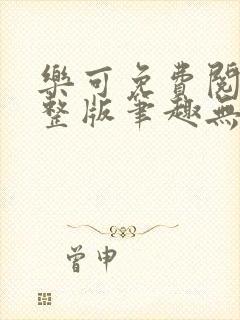 樂可免費閱
整版筆趣無
曾申